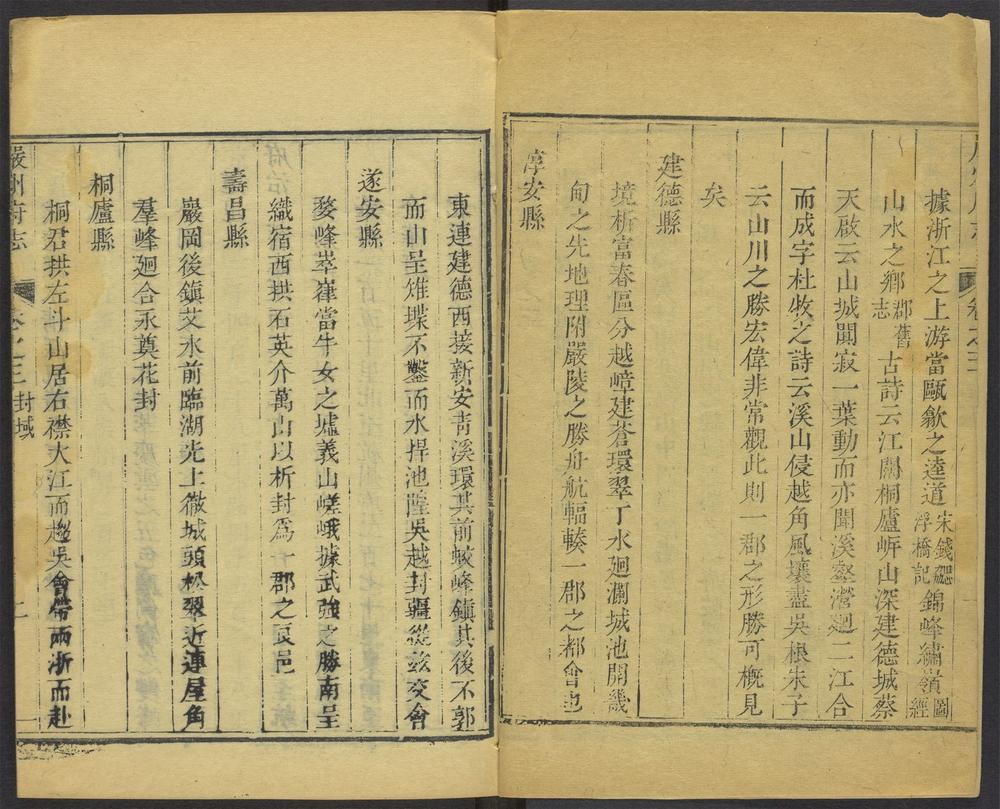 據浙江之上游當甌歙之逵道宋錢勰浮橋記錦峰繡嶺圖經
山水之鄉郡舊志古詩云江闊桐廬岍山深建德城蔡
天啟云山城闃寂一葉動而亦聞溪壑瀅迴二江合
而成字杜牧之詩云溪山侵越角風壤盡吳根朱子
云山川之勝宏偉非常觀此則一郡之形勝可概見
矣
建德縣
境析富春區分越嶂建蒼環翠丁水廻瀾城池開幾
甸之先地理附嚴陵之勝舟航輻輳一郡之都會也
淳安縣
東連建德西接新安青溪環其前蛟峰鎮其後不郭
而山呈雉堞不鑿而水捍池隍吳越封疆從玆交會
遂安縣
婺峰崒嵂當牛女之墟義山嵯峨據武強之勝南呈
織宿西拱石英介萬山以析封爲一郡之良邑
壽昌縣
巖岡後鎮艾水前臨湖光上徹城頭松翠近連屋角
羣峰廻合永奠花封
桐廬縣
桐君拱左斗山居右襟大江而趨吳會帶兩浙而赴
嚴州府志 卷之三 封域